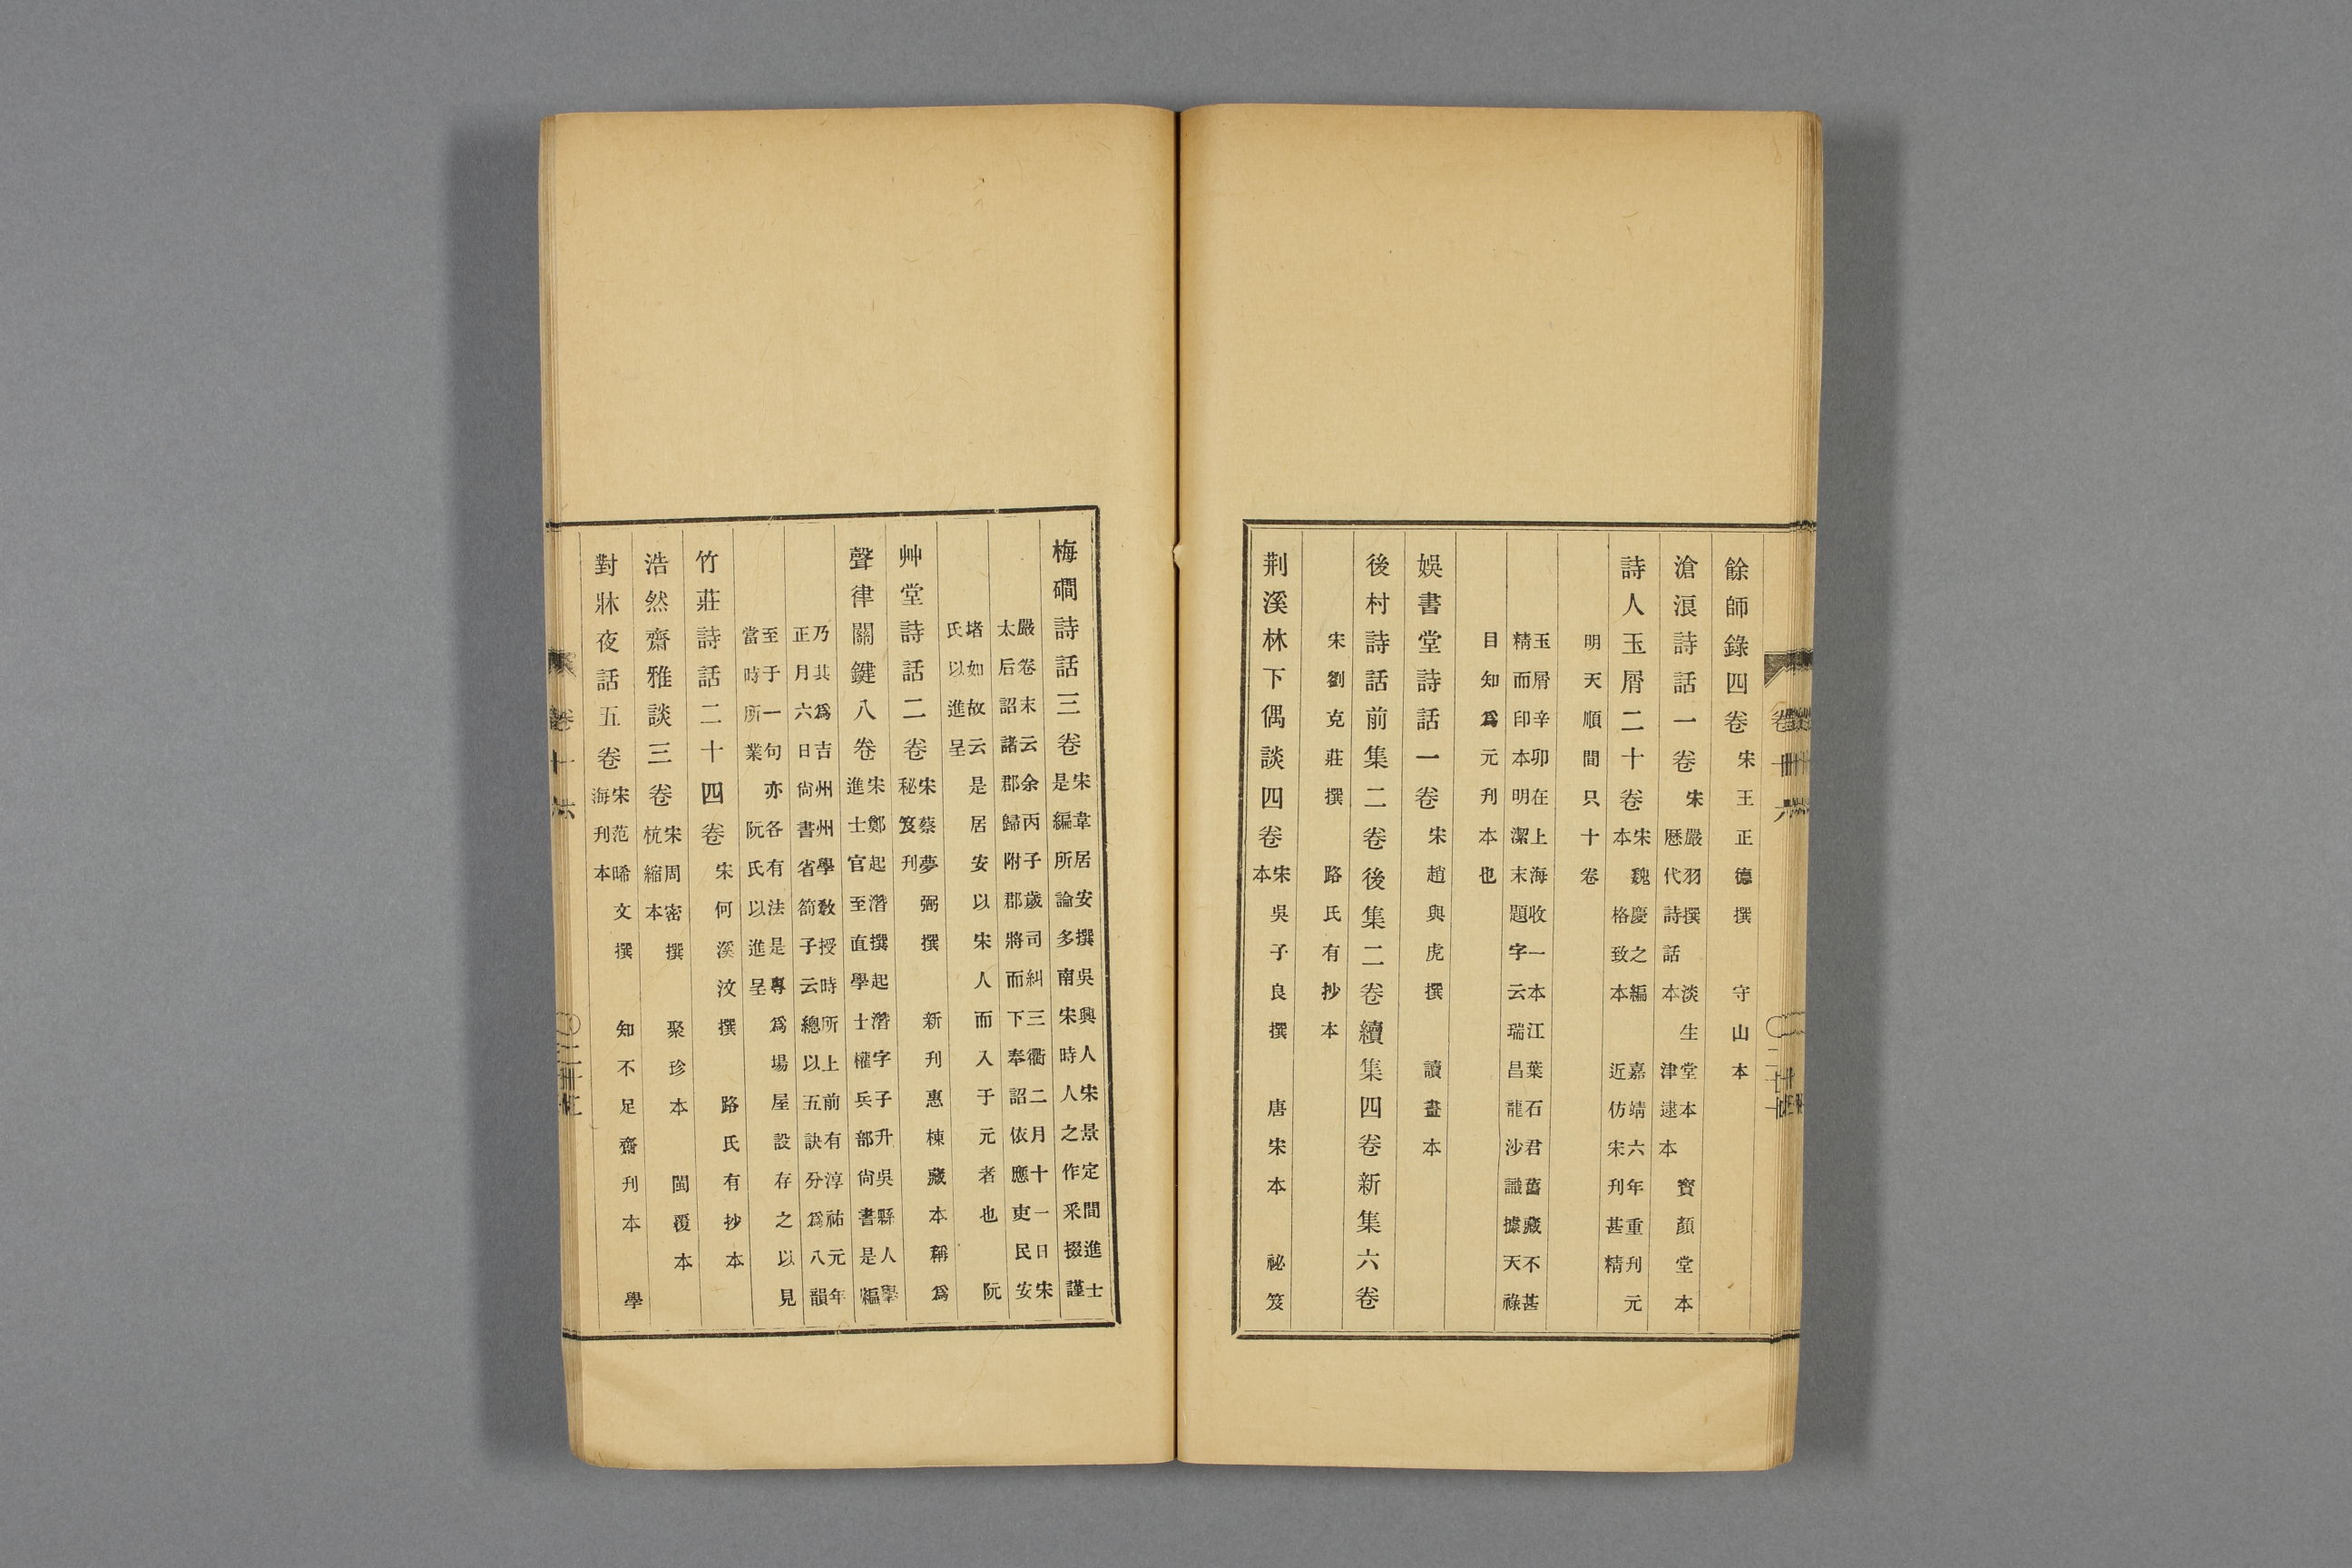 餘師錄四卷 宋王正德撰 守山本
滄浪詩話一卷 宋嚴羽撰 淡生堂本 寳顏堂本
歷代詩話本 津逮本
詩人玉屑二十卷 宋魏慶之編 嘉靖六年重刊元
本 格致本 近仿宋刊甚精
明天順間只十卷
玉屑辛卯在上海收一本江葉石君舊藏不甚
精而印本明潔末題字云瑞昌龍沙識據天祿
目知爲元刊本也
娛書堂詩話一卷 宋趙與虎撰 讀畫本
後村詩話前集二卷後集二卷續集四卷新集六卷
宋劉克莊撰 路氏有抄本
荆溪林下偶談四卷 宋吳子良撰 唐宋本 祕笈
本
梅磵詩話三卷 宋韋居安撰吳興人宋景定間進士
是編所論多南宋時人之作釆掇謹
嚴卷末云余丙子歲司糾三衢二月十一日宋
太后詔諸郡歸附郡將而下奉詔依應吏民安
堵如故云是居安以宋人而入于元者也 阮
氏以進呈
艸堂詩話二卷 宋蔡夢弼撰 新刊惠棟藏本稱爲
秘笈刊
聲律關鍵八卷 宋鄭起潛撰起潛字子升吳縣人舉
進士官至直學士權兵部尙書是編
乃其爲吉州州學敎授時所上前有淳祐元年
正月六日尙書省箚子云總以五訣分爲八韻
至于一句亦各有法是專爲場屋設存之以見
當時所業 阮氏以進呈
竹莊詩話二十四卷 宋何溪汶撰 路氏有抄本
浩然齋雅談三卷 宋周密撰 聚珍本 閩覆本
杭縮本
對牀夜話五卷 宋范晞文撰 知不足齋刊本 學
海刊本